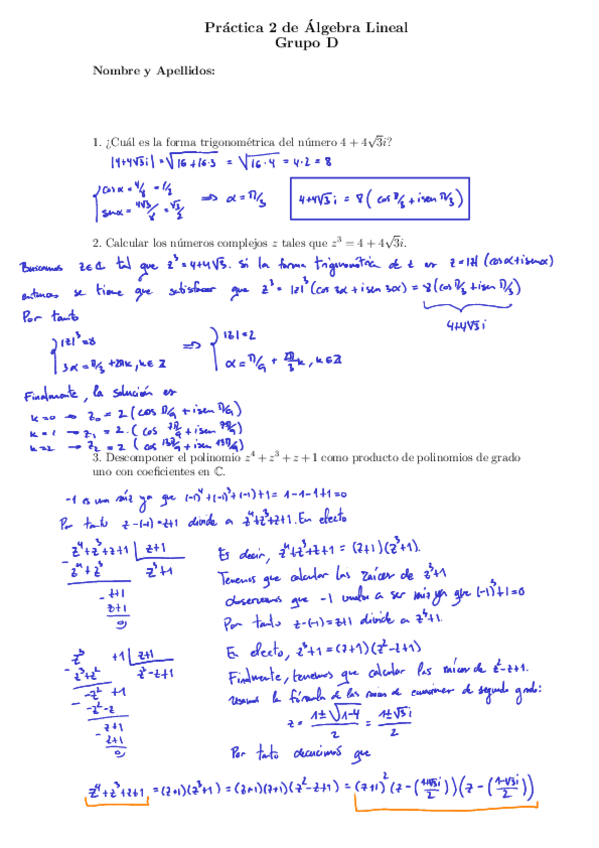 Práctica 2 de Álgebra Lineal
Grupo D
Nombre y Apellidos:
1. ¿Cuál es la forma trigonométrica del número 4 + 4√3i?
|4+4√3i| = √(16+16·3) = √(16·4) = 4·2 = 8
{cos α = 4/8 = 1/2
{sen α = 4√3/8 = √3/2 ⇒ α = π/3
4+4√3i = 8(cos π/3 + i sen π/3)
2. Calcular los números complejos z tales que z³ = 4 + 4√3i.
Buscamos z∈ℂ tal que z³ = 4+4√3i. Si la forma trigonométrica de z es z = |z|(cos α + i sen α)
entonces se tiene que satisfacer que z³ = |z|³(cos 3α + i sen 3α) = 8(cos π/3 + i sen π/3)
4+4√3i
Por tanto
{|z|³ = 8
{3α = π/3 + 2πk, k∈ℤ
⇒ {|z| = 2
{α = π/9 + 2π/3 k, k∈ℤ
Finalmente, la solución es
k=0 → z₀ = 2(cos π/9 + i sen π/9)
k=1 → z₁ = 2·(cos 7π/9 + i sen 7π/9)
k=2 → z₂ = 2(cos 13π/9 + i sen 13π/9)
3. Descomponer el polinomio z⁴ + z³ + z + 1 como producto de polinomios de grado
uno con coeficientes en ℂ.
-1 es una raíz ya que (-1)⁴ + (-1)³ + (-1) + 1 = 1-1-1+1 = 0
Por tanto z-(-1) = z+1 divide a z⁴+z³+z+1. En efecto
z⁴+z³+z+1 | z+1
- z⁴+z³ z³+1
- z+1
z+1
0
Es decir, z⁴+z³+z+1 = (z+1)(z³+1).
Tenemos que calcular las raíces de z³+1
observamos que -1 vuelve a ser raíz ya que (-1)³+1=0
Por tanto z-(-1) = z+1 divide a z³+1.
z³ +1 | z+1
- z³+z² z²-z+1
- -z² +1
-z²-z
- z+1
z+1
0
En efecto, z³+1 = (z+1)(z²-z+1)
Finalmente, tenemos que calcular las raíces de z²-z+1.
usamos la fórmula de las raíces de ecuaciones de segundo grado:
z = (1±√(1-4))/2 = (1±√3i)/2
Por tanto deducimos que
z⁴+z³+z+1 = (z+1)(z³+1) = (z+1)(z+1)(z²-z+1) = (z+1)²(z-((1+√3i)/2))(z-((1-√3i)/2))